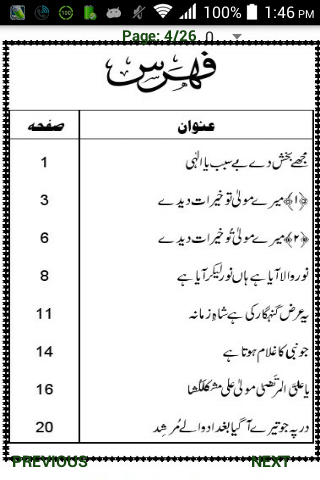 100% 1:46 PM
Page: 4/26 0
فہرس
عنوان صفحہ
مجھے بخش دے بے سبب یا الٰہی 1
﴿۱﴾ میرے مولیٰ تو خیرات دیدے 3
﴿۲﴾ میرے مولیٰ تُو خیرات دیدے 6
نور والا آیا ہے ہاں نور لیکر آیا ہے 8
یہ عرض گنہگار کی ہے شاہِ زمانہ 11
جو نبی کا غلام ہوتا ہے 14
یا علیَّ المرتضیٰ مولیٰ علی مشکلکشا 16
در پہ جو تیرے آ گیا بغداد والے مُرشِد 20
PREVIOUS NEXT